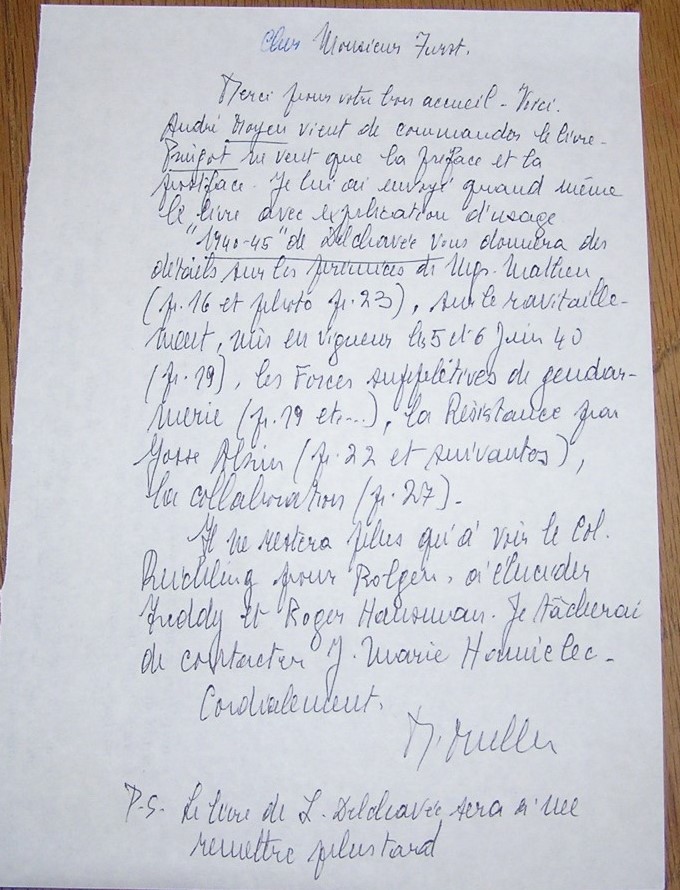 Cher Monsieur Furst.
Merci pour votre bon accueil - Voici.
André Moyen vient de commander le livre -
Puigot ne veut que la préface et la
postface. Je lui ai envoyé quand même
le livre avec explication d'usage
"1940-45" de Delchavée vous donnera des
détails sur les prémices de Mgr. Mathen
(p. 16 et photo p. 23), sur le ravitaille-
ment, mis en vigueur les 5 et 6 Juin 40
(p. 19), les Forces supplétives de gendar-
merie (p. 19 et...), la Résistance par
Gosse Albin (p. 22 et suivantes),
la collaboration (p. 27) -
Il ne restera plus qu'à voir le Col.
pour Bolgen, à élucider
Freddy et Roger Hansman. Je tâcherai
de contacter J. Marie Hamielec -
Cordialement.
P.S. Le livre de L. Delchavée sera à me
remettre plus tard